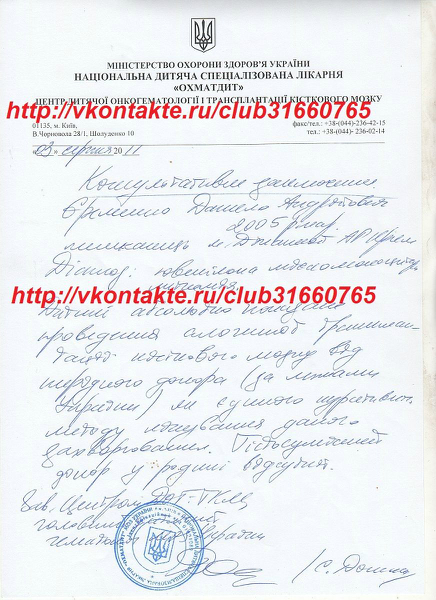 МІНІСТЕРСТВО ОХОРОНИ ЗДОРОВ'Я УКРАЇНИ
НАЦІОНАЛЬНА ДИТЯЧА СПЕЦІАЛІЗОВАНА ЛІКАРНЯ
«ОХМАТДИТ»
ЦЕНТР ДИТЯЧОЇ ОНКОГЕМАТОЛОГІЇ І ТРАНСПЛАНТАЦІЇ КІСТКОВОГО МОЗКУ
http://vkontakte.ru/club31660765
01135, м. Київ, факс/тел.: +38-(044)-236-42-15
В.Чорновола 28/1, Шолуденко 10 тел.: +38-(044)-236-02-14
03 » серпня 2011
Консультативне заключення
Єременко Данило Андрійович
2005
мешканець м. Джанкой АР Крим
Діагноз: ювенільна
http://vkontakte.ru/club31660765
Дитині абсолютно показане
проведення алогенної трансплан-
тації кісткового мозку від
нерідного донора (за межами
України) як єдиного
методу лікування даного
захворювання. Гістосумісний
донор у родині відсутній.
Зав. Центром
головний
України